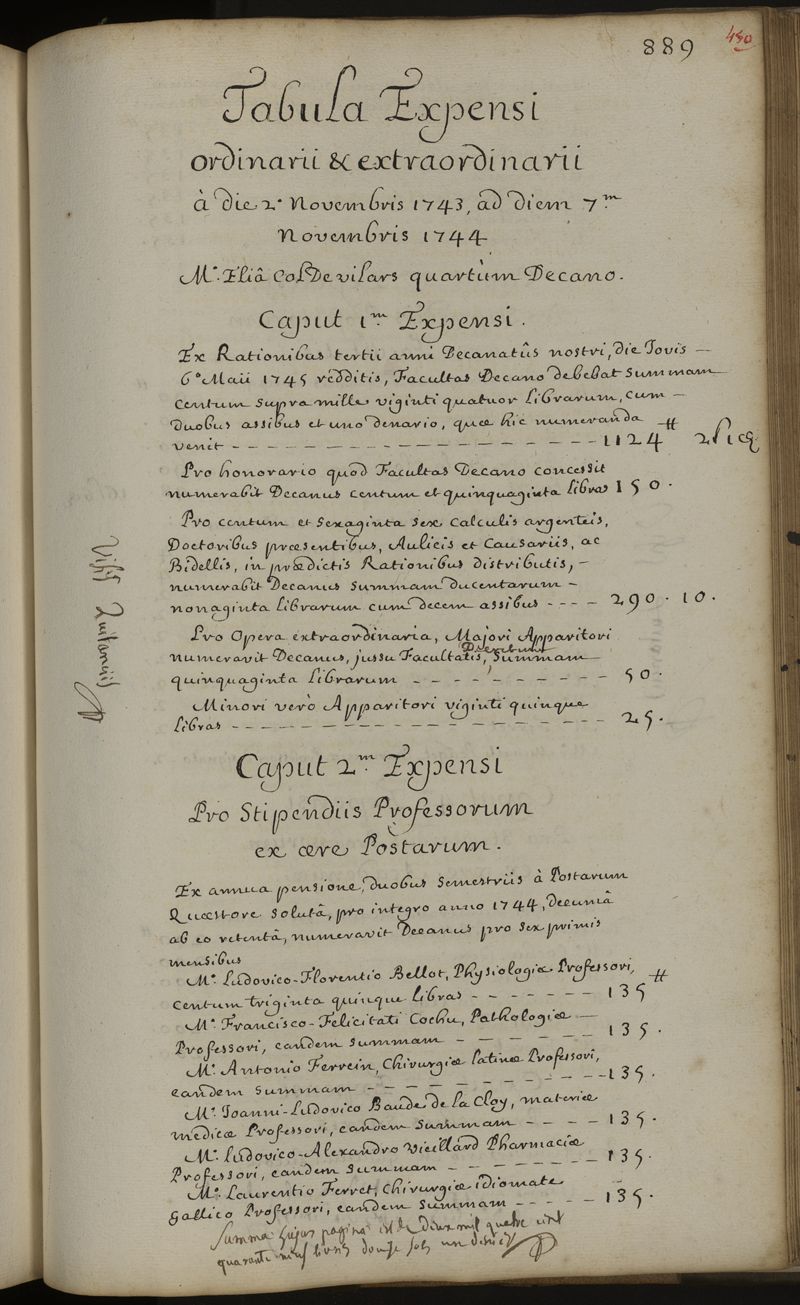 889 450
Tabula Expensi
ordinarii & extraordinarii
à die 2.ª Novembris 1743, ad diem 7.m
Novembris 1744
M.º Eliâ Col De vilars quartùm Decano.
Caput 1.m Expensi.
Ex Rationibus tertii anni Decanatûs nostri, die Jovis —
6.º Maii 1745 redditis, Facultas Decano debebat summam
centum supra mille viginti quatuor librarum, cum —
duobus assibus et uno denario, quæ hic numeranda
venit - - - - - - - - - - - - - - - - 1124 ₶ 2ſ 1 ᵭ
Pro honorario quod Facultas Decano concessit
numerabit Decanus centum et quinquaginta libras 150.
Pro centum et sexaginta sex calculis argenteis,
Doctoribus præsentibus, Aulicis et Causariis, ac
Bidellis, in prædictis Rationibus distributis, -
numerabit Decanus summam ducentarum -
nonaginta librarum cum decem assibus - - - - 290. 10.
Pro Opera extraordinaria, Majori Apparitori
numeravit Decanus, jussu Facultatis, summam
quinquaginta librarum - - - - - - - - - 50.
Minori verò Apparitori viginti quinque
libras - - - - - - - - - - - - - - - - - - 25.
Caput 2.m Expensi
Pro Stipendiis Professorum
ex ære Postarum.
Ex annua pensione, duobus semestriis à Postarum
Quæstore solutâ, pro integro anno 1744, Decimâ
ab eo retentâ, numeravit Decanus pro sex primis
mensibus
M.º Ludovico-Florentio Bellot, Physiologiæ Professori,
centum triginta quinque libras - - - - - - - 135 ₶
M.º Francisco-Felicitati Cochu, Pathologiæ —
Professori, eandem summam - - - - - - - 135.
M.º Antonio Ferrein, Chirurgiæ latinæ Professori,
eandem summam - - - - - - - - - - - - 135.
M.º Joanni-Ludovico Baude de la Cloy, materiæ
medicæ Professori, eandem summam - - - - 135.
M.º Ludovico-Alexandro Vieillard Pharmaciæ
Professori, eandem summam - - - - - - - 135.
M.º Laurentio Ferret, Chirurgiæ idiomate
Gallico Professori, eandem summam - - - - - 135.
Summa hujus paginæ est de deux mil quatre cent
quarante neuf livres douze sols un denier